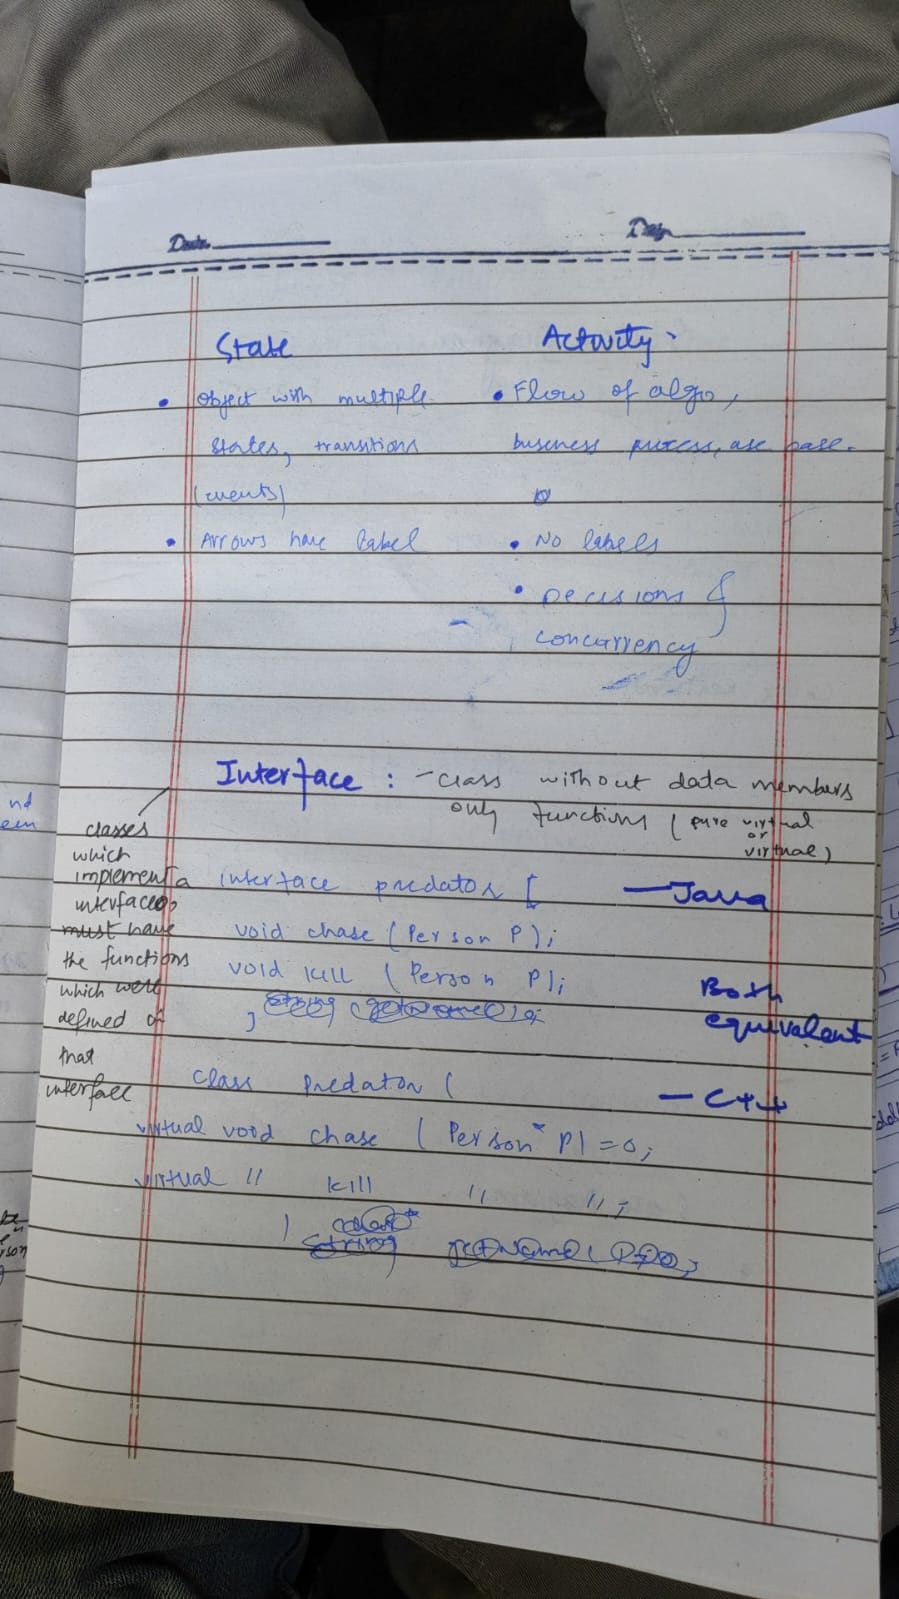 Date
Day
State
Activity
• object with multiple
states, transitions
(events)
• Arrows have label
• Flow of algo,
business process, use case.
• No labels
• Decisions &
concurrency
Interface : - class without data members
only functions (pure virtual
or
virtual)
classes
which
implement a
interface,
must have
the functions
which were
defined of
that
interface
interface predator { — Java
void chase (Person P);
void kill (Person P);
}
Both
equivalent
class Predator { — C++
virtual void chase (Person* P) = 0;
virtual " kill " " ;
}